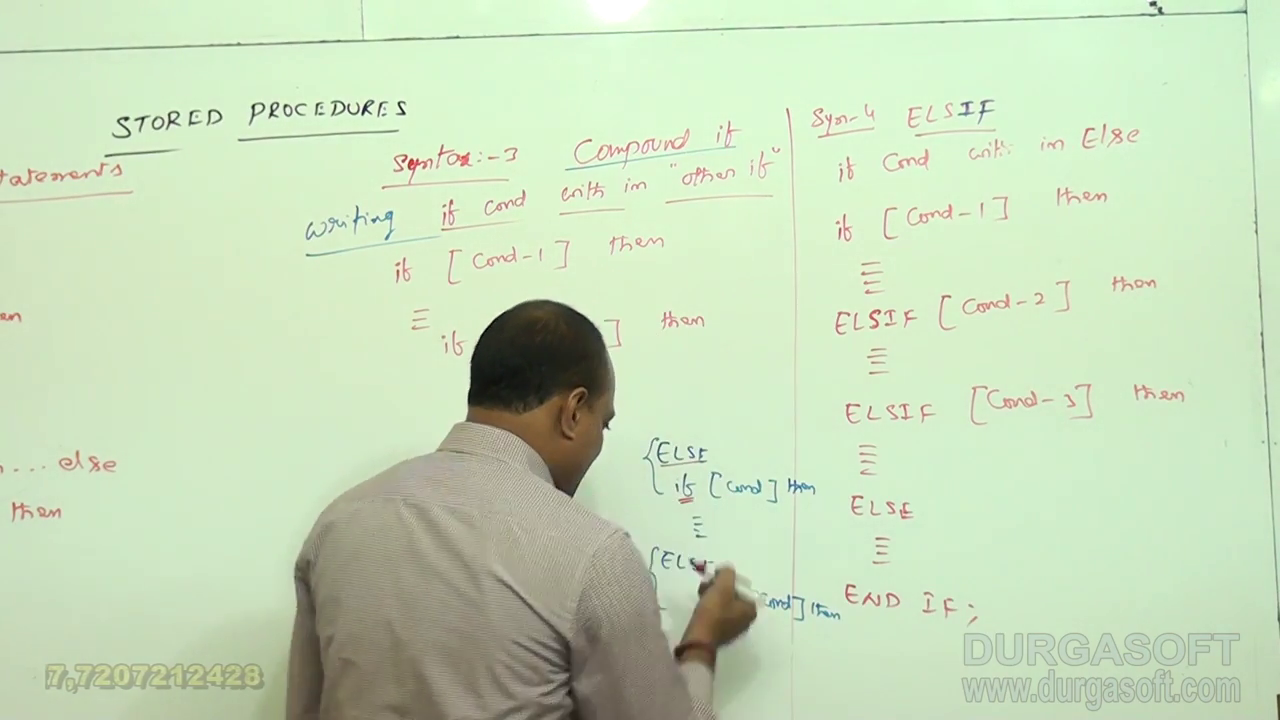 STORED PROCEDURES
tatements
en
... else
then
Syntax:-3 Compound if
writing if cond with in "other if"
if [Cond-1] then
if ] then
{ELSE
if [Cond] then
{ELSE
Cond] then
Syn-4 ELSIF
if Cond with in Else
if [Cond-1] then
ELSIF [Cond-2] then
ELSIF [Cond-3] then
ELSE
END IF;
7,7207212428
DURGASOFT
www.durgasoft.com